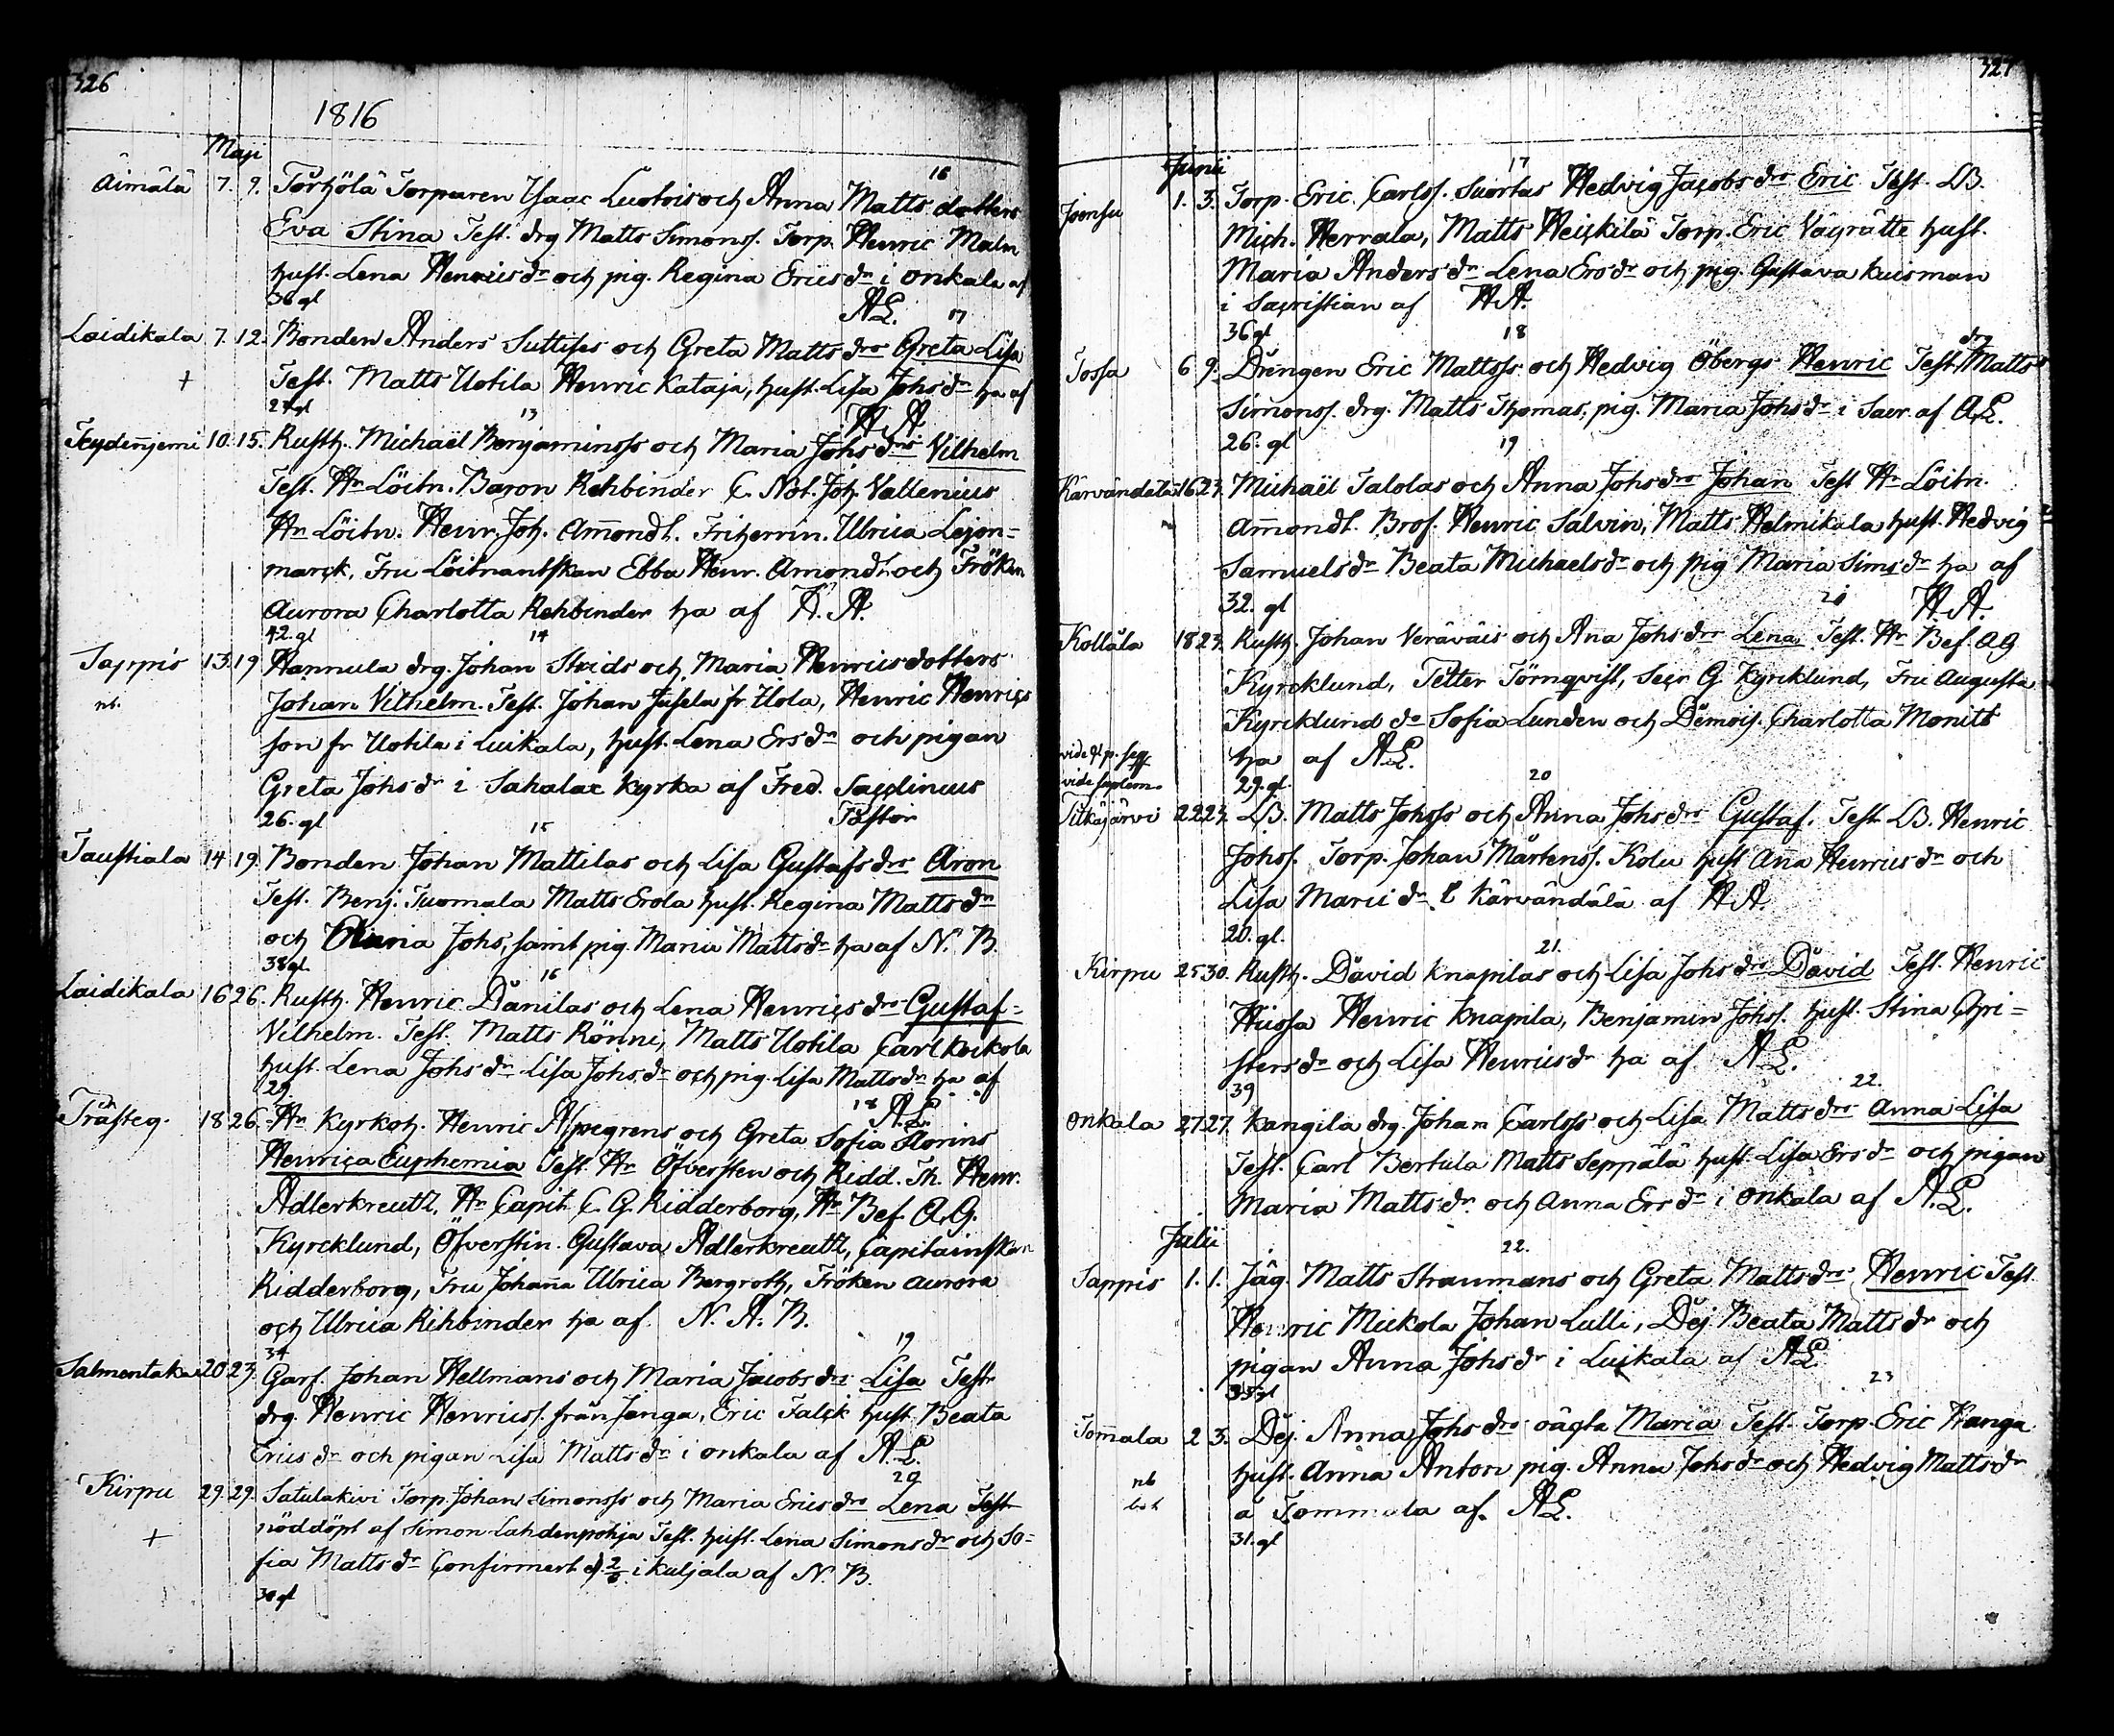 326
1816
Maji
16
Äimälä 7. 9. Törhölä Torparen Isaac Luotois och Anna Matts dotters
Eva Stina Test. drg Matts Simonss. Torp. Henric Malm
hust. Lena Henricsdr och pig. Regina Ericsdr i Onkala af
36 gl AL. 17
Laidikala 7. 12. Bonden Anders Suttises och Greta Mattsdrs Greta Lisa
+ Test. Matts Uotila Henric Kataja, hust. Lisa Johsdr ha af
27 gl 13 HA
10. 15. Rusth. Michaël Benjaminss och Maria Johsdrs Vilhelm
Test. Hr Löitn. Baron Rehbinder C. Not. Joh. Vallenius
Hr Löitn. Henr. Joh. Amondt. Friherrin. Ulrica Lejon=
marck, Fru Löitnantskan Ebba Henr. Amondt och Fröken
Aurora Charlotta Rehbinder ha af H. A.
42. gl 14
Sappis 13. 19 Hannula drg. Johan Strids och Maria Henricsdotters
nb. Johan Vilhelm. Test. Johan Jusela fr Uola, Henric Henrics
son fr Uotila i Luikala, hust. Lena Ersdr och pigan
Greta Johsdr i Sahalax Kyrka af Fred. Sacklinius
26. gl 15 Pastor
Taustiala 14. 19. Bonden Johan Mattilas och Lisa Gustafsdrs Aron
Test. Benj. Tuomala Matts Erola hust. Regina Mattsdr
och Maria Johs, samt pig. Maria Mattsdr ha af N. B.
38 gl 16
Laidikala 16 26. Rusth. Henric Danilas och Lena Henricsdrs Gustaf=
Vilhelm. Test. Matts Rönni, Matts Uotila Carl Kuikola
hust. Lena Johsdr Lisa Johsdr och pig. Lisa Mattsdr ha af
29. 18 A.L.
18 26. Hr Kyrkoh. Henric Alpegrens och Greta Sofia Florins
Henrica Euphemia Test. Hr Öfversten och Ridd. Th. Henr.
Adlerkreutz, Hr Capit. C. G. Ridderborg, Hr Bef. A. G.
Kyrcklund, Öfverstin. Gustava Adlerkreutz, Capitainskan
Ridderborg, Fru Johana Ulrica Bergroth, Fröken Aurora
och Ulrica Rehbinder ha af. N. A. B.
34 19
Salmentaka 20 23. Garf. Johan Hellmans och Maria Jacobsdrs Lisa Test.
drg. Henric Henricss. från Jenga, Eric Falck hust. Beata
Ericsdr och pigan Lisa Mattsdr i Onkala af A. L.
20
Kirpu 29. 29. Satulakivi Torp. Johan Simonss och Maria Ericsdrs Lena Test
+ nöddöpt af Simon Lahdenpohja Test. hust. Lena Simonsdr och So=
fia Mattsdr Confirmert d. 2/6 i Kuljala af N. B.
30 gl
327
Junii 17
Joensu 1. 3. Torp. Eric Carlss. Suortas Hedvig Jacobsdrs Eric Test. LB.
Mich. Herrala, Matts Heickilä Torp. Eric Väyrätte hust.
Maria Andersdr Lena Ersdr och pig. Gustava Kuisman
i Sacristian af HA.
36 gl 18
Jossa 6 9. Drengen Eric Mattss och Hedvig Öbergs Henric Test. drg Matts
Simonss. drg. Matts Thomas, pig. Maria Johsdr i Sacr. af AL.
26. gl 19
Kärvändälä 16 23. Michaël Talolas och Anna Johsdrs Johan Test Hr Löitn.
Amondt. Prof. Henric Salvin, Matts Helmikala hust. Hedvig
Samuelsdr Beata Michaelsdr och pig Maria Simsdr ha af
32. gl 20 HA.
Kollala 18 23. Rusth. Johan Veräväis och Ana Johsdrs Lena Test. Hr Bef. AG
Kyrcklund, Petter Törnqvist, Secr. G. Kyrcklund, Fru Augusta
Kyrcklund dr Sofia Lunden och Demois. Charlotta Monitt
ha af AL.
29. gl. 20
Pitkäjärvi 22 23. LB. Matts Johss och Anna Johsdrs Gustaf. Test. LB. Henric
Johss. Torp. Johan Mårtenss. Kolu hust Ana Henricsdr och
Lisa Maricidr i Kärvändälä af HA.
20. gl. 21.
Kirpu 25 30. Rusth. David Knapilas och Lisa Johsdrs David Test. Henric
Hiissa Henric Knapila, Benjamin Johss. hust. Stina Chri=
stersdr och Lisa Henricsdr ha af A L.
39 22.
Onkala 27 27. Kangila drg. Johan Carlss och Lisa Mattsdrs Anna Lisa
Test. Carl Bertula Matts Seppälä hust. Lisa Ersdr och pigan
Maria Mattsdr och Anna Ersdr i Onkala af A. L.
Julii 22.
Sappis 1. 1. Jäg. Matts Straumans och Greta Mattsdrs Henric Test.
Henric Mickola Johan Lulli, Dej. Beata Mattsdr och
pigan Anna Johsdr i Luikala af AL
35 gl 23
Tommala 2 3. Dej. Anna Johsdrs oäcta Maria Test. Torp. Eric Wanga
nb hust. Anna Anton pig. Anna Johsdr och Hedvig Mattsdr
a Tommala af. AL.
31. gl